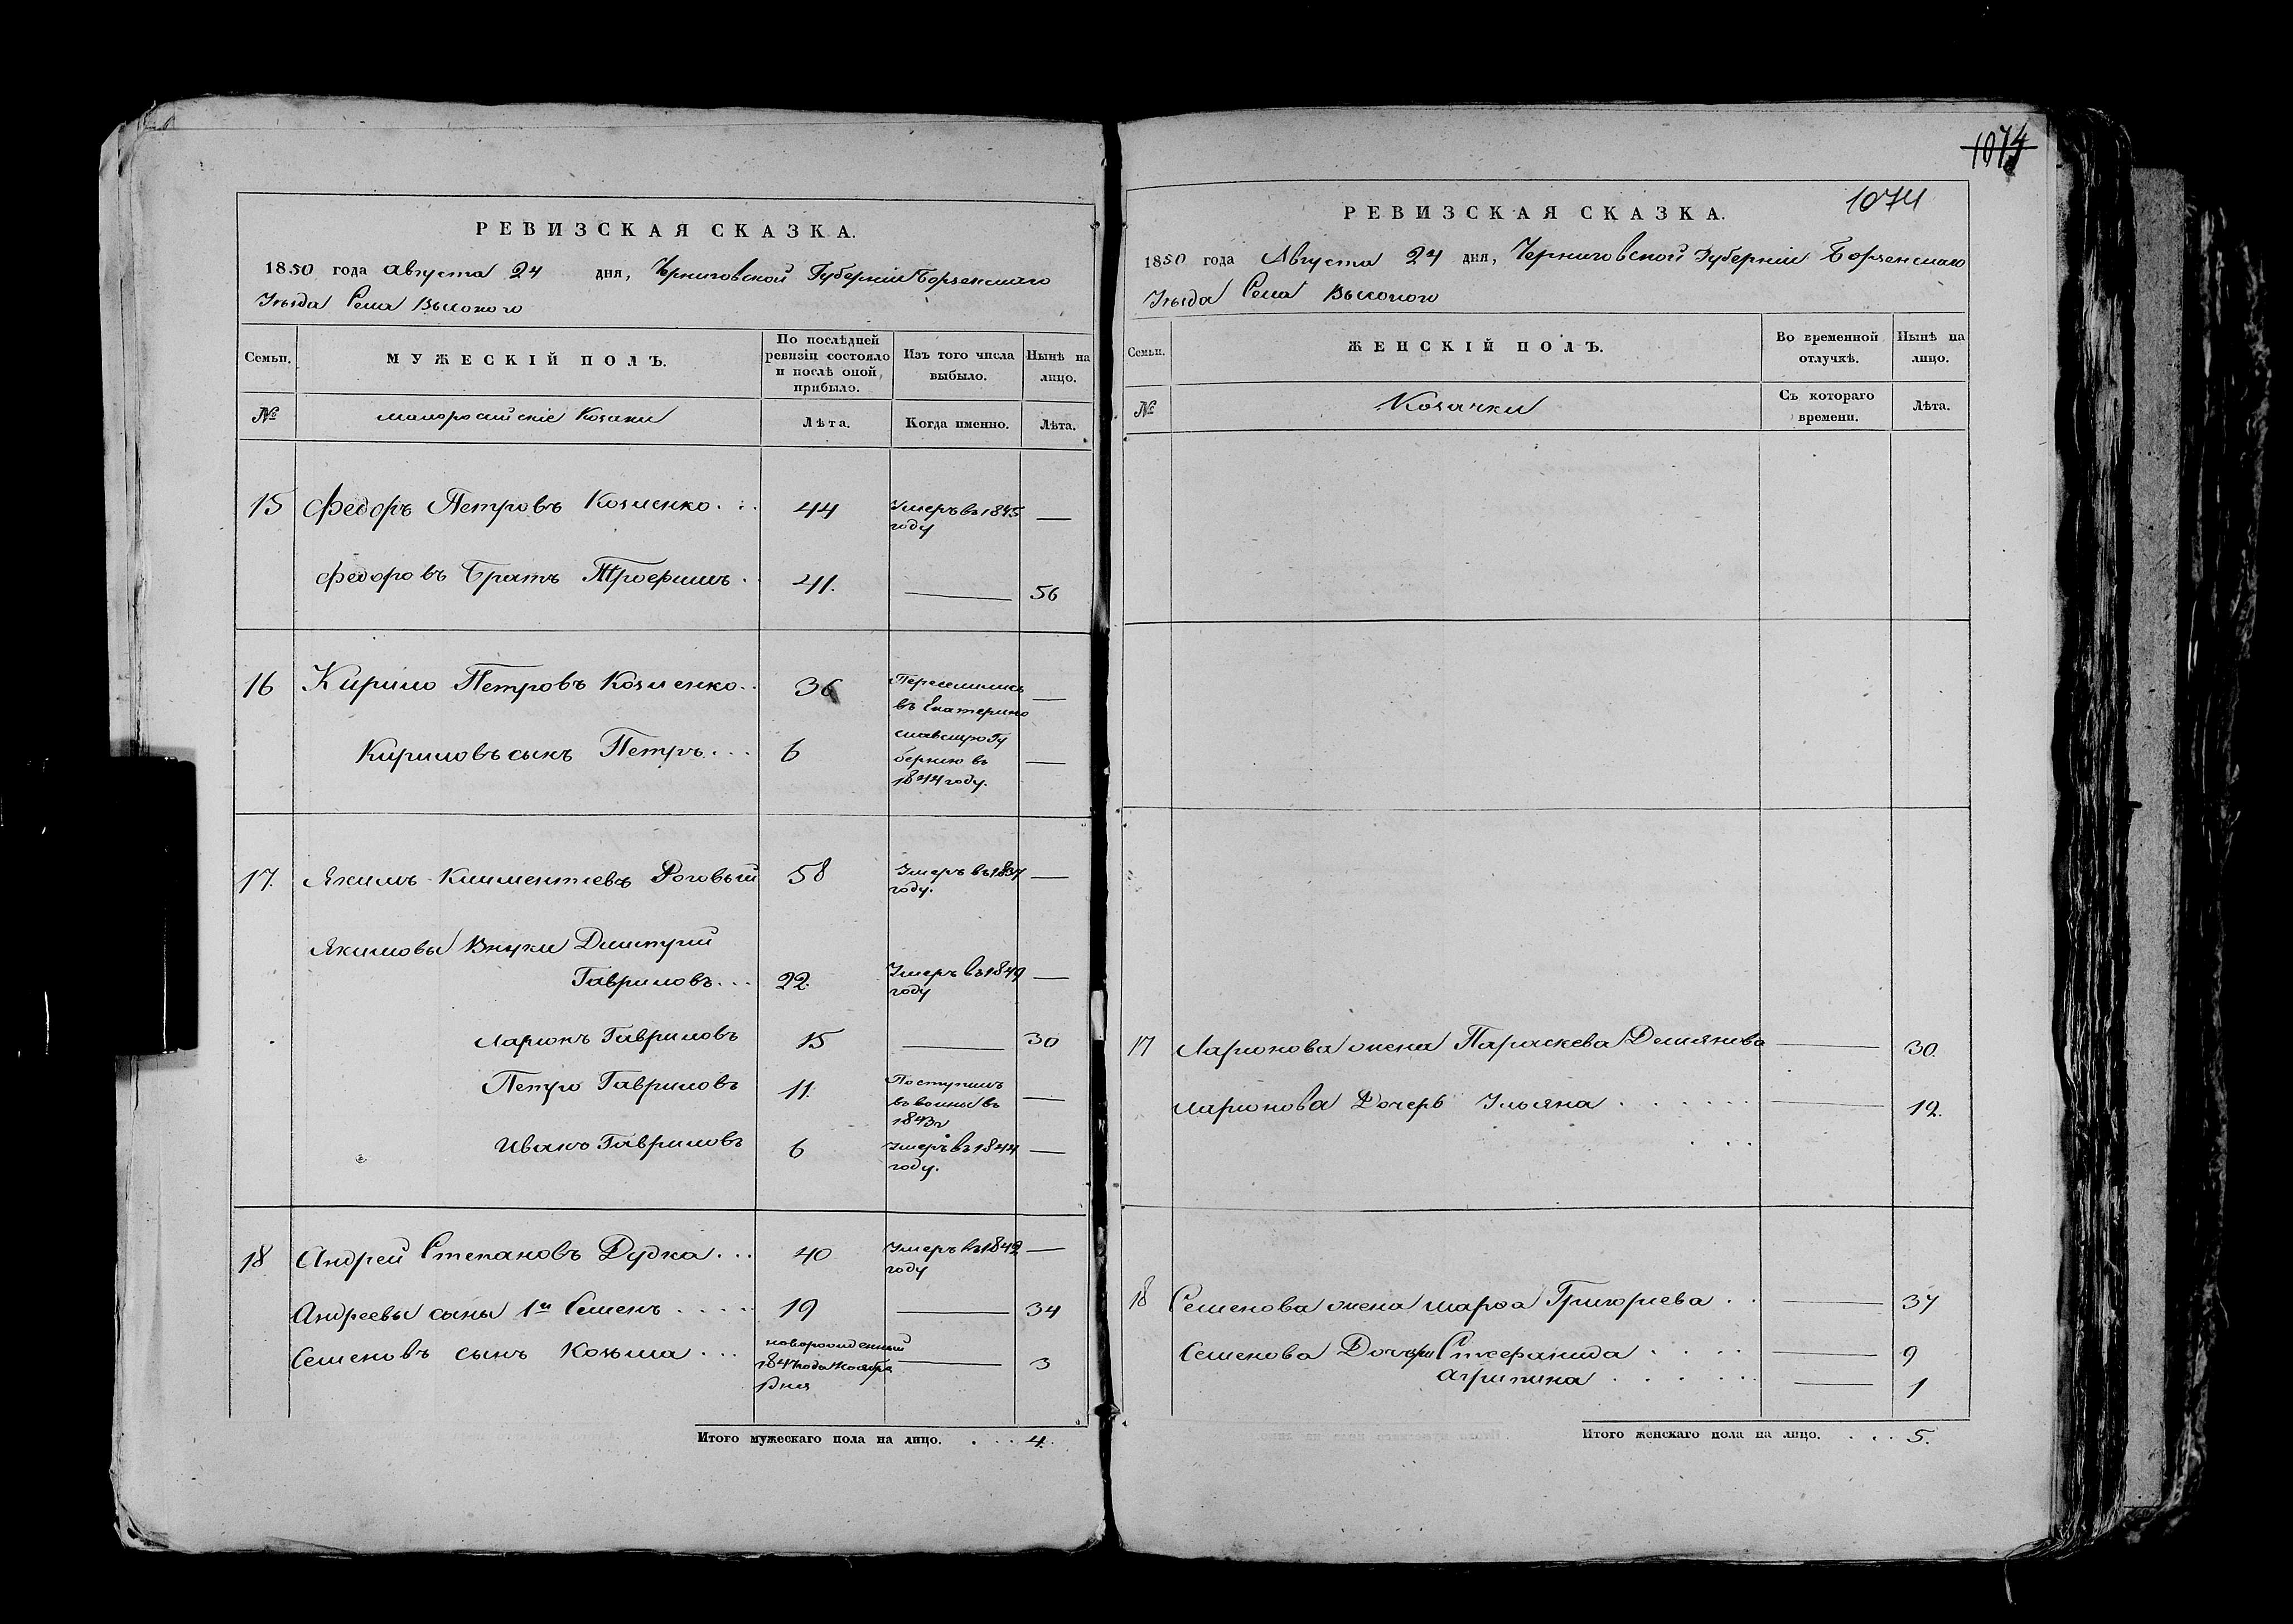 РЕВИЗСКАЯ СКАЗКА.
1850 года августа 24 дня, Черниговской Губерніи Борзенскаго
Уѣзда Села Высокого
Семьи.
МУЖЕСКІЙ ПОЛЪ.
По послѣдней
ревизіи состояло
и послѣ оной
прибыло.
Изъ того числа
выбыло.
Нынѣ на
лицо.
№
малоросійскіе Козаки
Лѣта.
Когда именно.
Лѣта.
15 Федоръ Петровъ Козленко . . . 44 Умеръ въ 1845 —
году
Федоровъ Братъ Трофимъ . . 41. — 56
16 Кирило Петровъ Козленко . . 36 Переселились —
въ Екатерино
славскую Гу
Кириловъ сынъ Петръ . . . 6 бернию въ —
1844 году.
17. Якимъ Климентиевъ Роговый 58 Умеръ въ 1837 —
году.
Якимовы Внуки Дмитрий
Гавриловъ . . . 22. Умеръ въ 1849 —
году
Ларионъ Гавриловъ 15 — 30
Петро Гавриловъ 11. Поступилъ —
въ воины въ
1843г
Иванъ Гавриловъ 6 Умеръ въ 1844 —
году.
18 Андрей Степановъ Дудка . . . 40 Умеръ въ 1842 —
году
Андреевы сыны 1й Семенъ . . . . . 19 — 34
Семеновъ сынъ Козьма . . . новорожденный — 3
1847 года Ноября
дня
Итого мужескаго пола на лицо. . . . 4.
1074
1074
РЕВИЗСКАЯ СКАЗКА.
1850 года Августа 24 дня, Черниговской Губерніи Борзенскаго
Уѣзда Села Высокого
Семьи.
ЖЕНСКІЙ ПОЛЪ.
Во временной
отлучкѣ.
Нынѣ на
лицо.
№
Козачки
Съ котораго
времени.
Лѣта.
17 Ларионова жена Параскева Демянова — 30.
Ларионова Дочерь Ульяна . . . . . . — 12.
18 Семенова жена Марфа Григориева . . — 37
Семенова Дочери Стефанида . . . . — 9
Агрипина . . . . . . — 1
Итого женскаго пола на лицо. . . . 5.